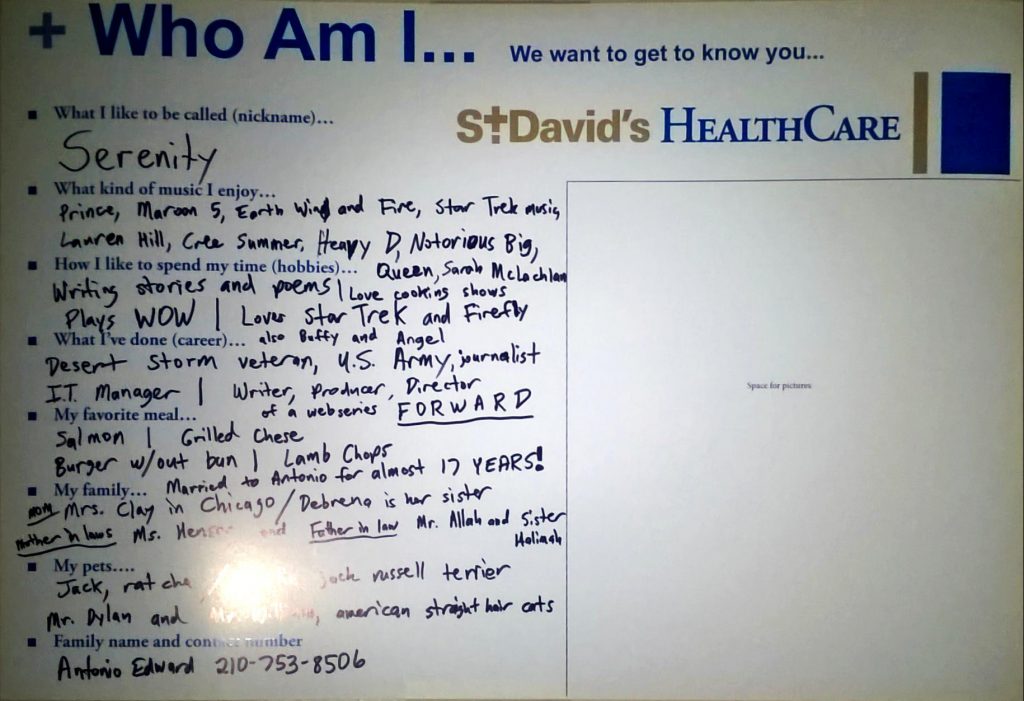 + Who Am I... We want to get to know you...
StDavid's HEALTHCARE
What I like to be called (nickname)...
Serenity
What kind of music I enjoy...
Prince, Maroon 5, Earth Wind and Fire, Star Trek music,
Lauren Hill, Cree Summer, Heavy D, Notorious Big,
Queen, Sarah McLachlan
How I like to spend my time (hobbies)...
Writing stories and poems | Love cooking shows
Plays WOW | Loves Star Trek and Firefly
also Buffy and Angel
What I've done (career)...
Desert Storm veteran, U.S. Army, journalist
I.T. Manager | Writer, Producer, Director
of a webseries FORWARD
My favorite meal...
Salmon | Grilled Chese
Burger w/out bun | Lamb Chops
My family... Married to Antonio for almost 17 YEARS!
mom Mrs. Clay in Chicago / Debrena is her sister
Mother in laws Ms. and Father in law Mr. Allah and Sister
My pets....
Jack, rat jack russell terrier
Mr. Dylan and american straight hair cats
Family name and contact number
Antonio Edward 210-753-8506
Space for pictures